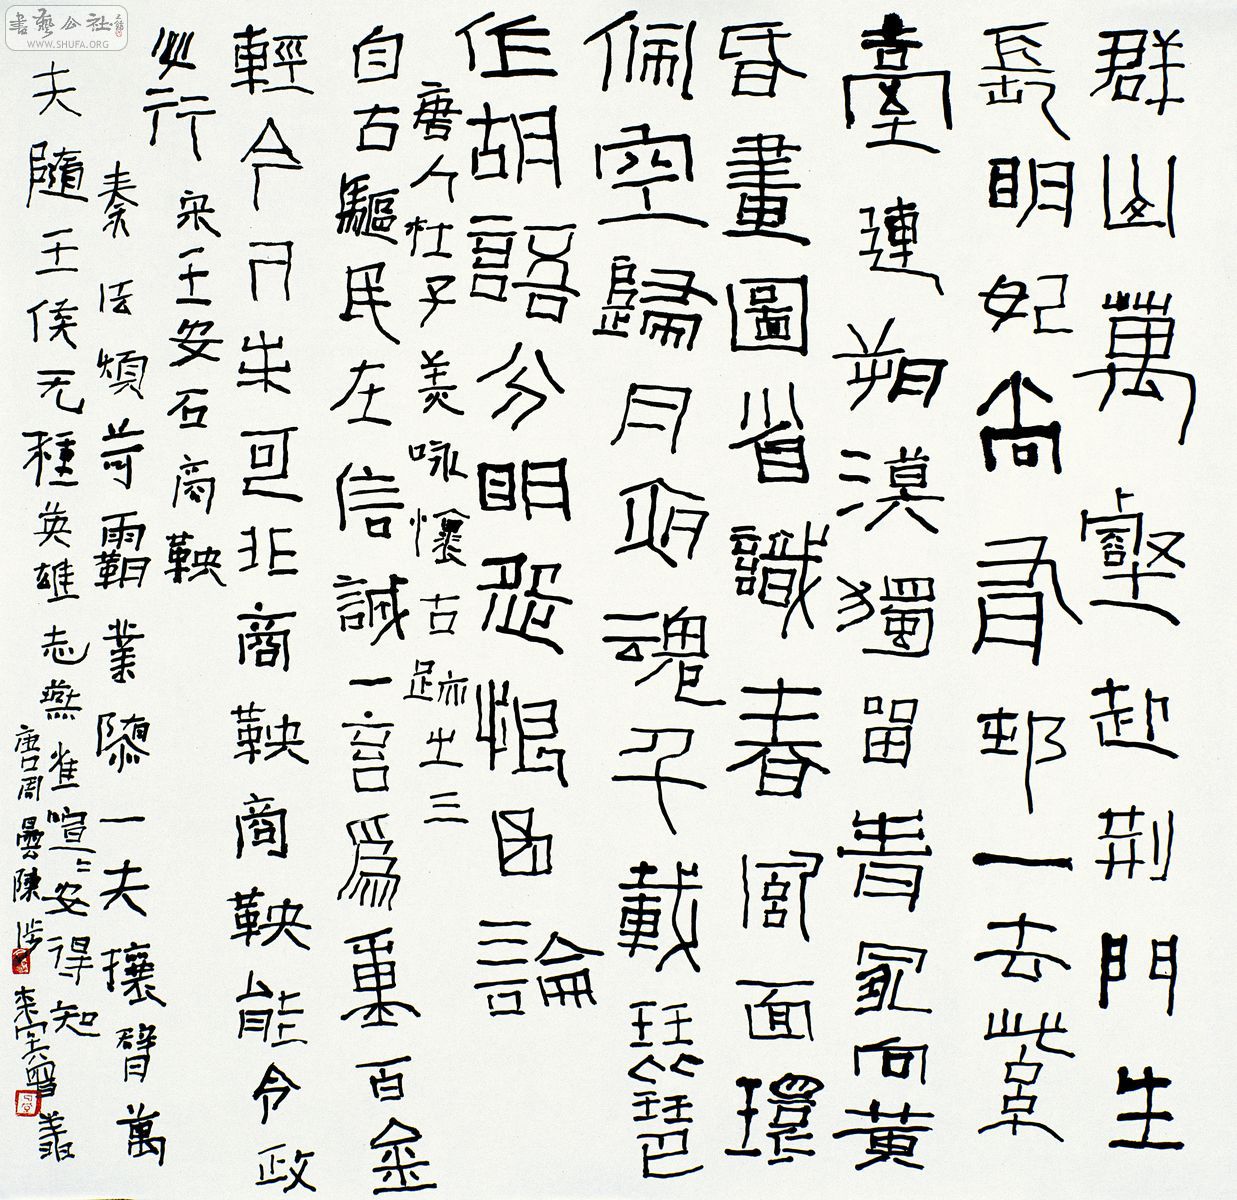 書藝公社
WWW.SHUFA.ORG
群山萬壑赴荊門生
長明妃尚有邨一去紫
臺連朔漠獨留青冢向黃
昏畫圖省識春風面環
佩空歸月夜魂千載琵琶
作胡語分明怨恨曲論
唐人杜子美咏懷古跡之三
自古驅民在信誠一言為重百金
輕今人未可非商鞅商鞅能令政
必行 宋王安石商鞅
秦法煩苛霸業隳一夫攘臂萬
夫隨王侯无種英雄志燕雀喧喧安得知
唐周曇陳涉